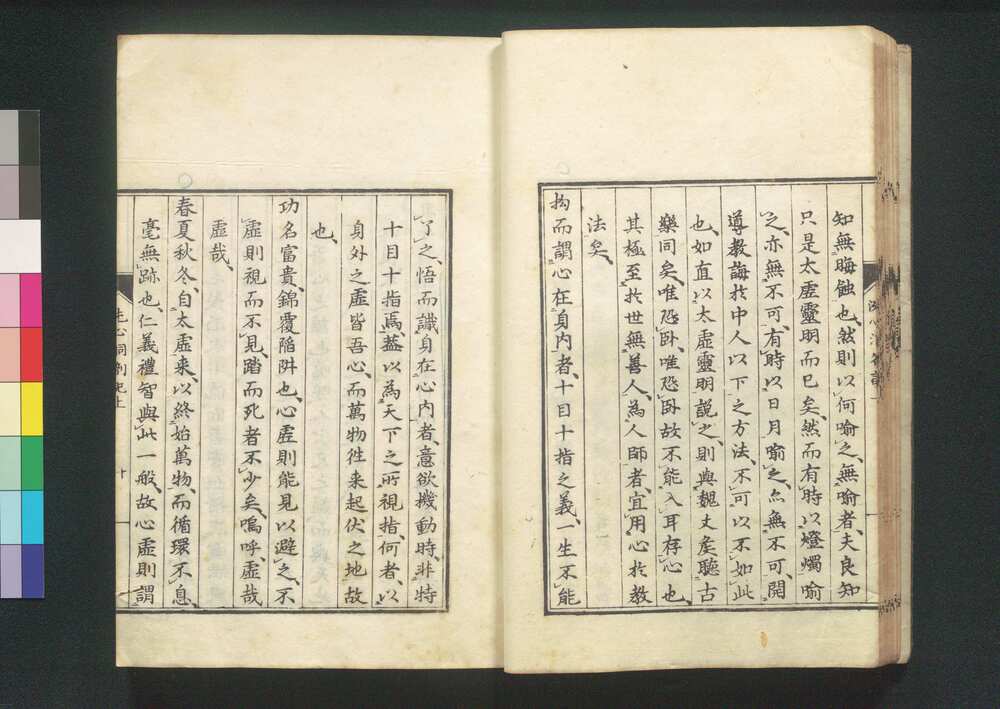 知無晦蝕也、然則以何喻之、無喻者、夫良知
只是太虛靈明而已矣、然而有時以燈燭喻
之、亦無不可、有時以日月喻之、亦無不可、開
導教誨於中人以下之方法、不可以不如此
也、如直以太虛靈明說之、則與魏文矦聽古
樂同矣、唯恐臥、唯恐臥故不能入耳存心也、
其極至於世無善人、為人師者、宜用心於教
法矣、
拘而謂心在身內者、十目十指之義、一生不能
了之、悟而識身在心內者、意欲機動時、非特
十目十指焉、蓋以為天下之所視指、何者、以
身外之虛皆吾心、而萬物徃来起伏之地故
也、
功名富貴、錦覆陷阱也、心虛則能見以避之、不
虛則視而不見、踏而死者不少矣、嗚呼、虛哉
虛哉、
春夏秋冬、自太虛来、以終始萬物、而循環不息、
毫無跡也、仁義禮智與此一般、故心虛則謂
洗心洞劄記上
十